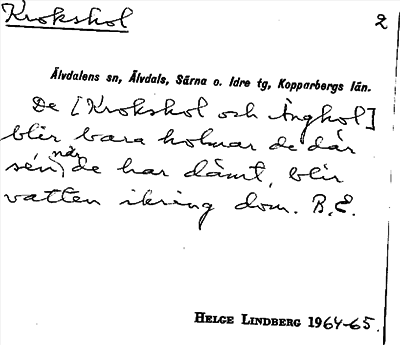 Krokskol 2
Älvdalens sn, Älvdals, Särna o. Idre tg, Kopparbergs län.
De [Krokskol och Ängkol]
blir bara holmar de där
sén, när de har dämt, blir
vatten ikring dom. B.E.
HELGE LINDBERG 1964-65.